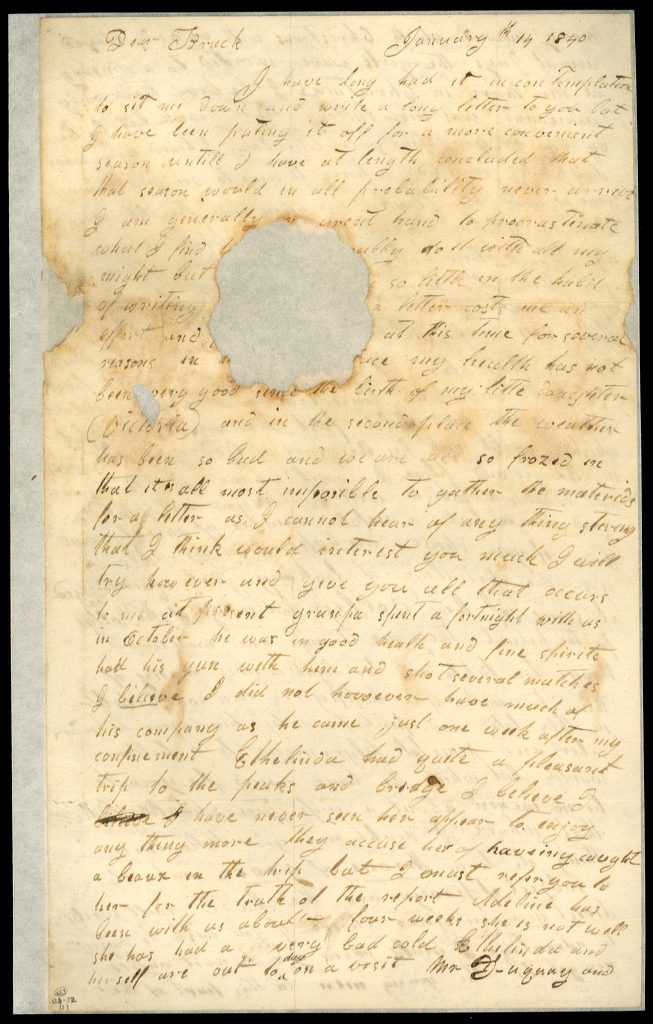 Dear Bruck January th 14 1840
I have long had it in contemplation
to sit me down and write a long letter to you but
I have been puting it off for a more convenient
season untill I have at length concluded that
that season would in all probability never arrive
I am generally great hand to procrastinate
what I find do it with all my
might but so little in the habit
of writing a letter costs me an
effort and at this time for several
reasons in my health has not
been very good since the birth of my little daughter
(Victoria) and in the second place the weather
has been so bad and we are all so frozed in
that it is all most imposible to gather the materials
for a letter as I cannot hear of any thing
that I think would interest you much I will
try however and give you all that occurs
to me at present granpa spent a fortnight with us
in October he was in good health and fine spirits
had his gun with him and shot several matches
I believe I did not hovoever have much of
his company as he came just one week after my
confinement Ethelinda had quite a pleasant
trip to the peaks and bridge I believe I
I have never seen her appear to enjoy
any thing more they accuse her of haveing caught
a beaux in the trip but I must refer you to
her for the truth of the report Adeline has
been with us about four weeks she is not well
she has had a very bad cold Ethelinda and
herself are out to day on a visit Mr Duguay and